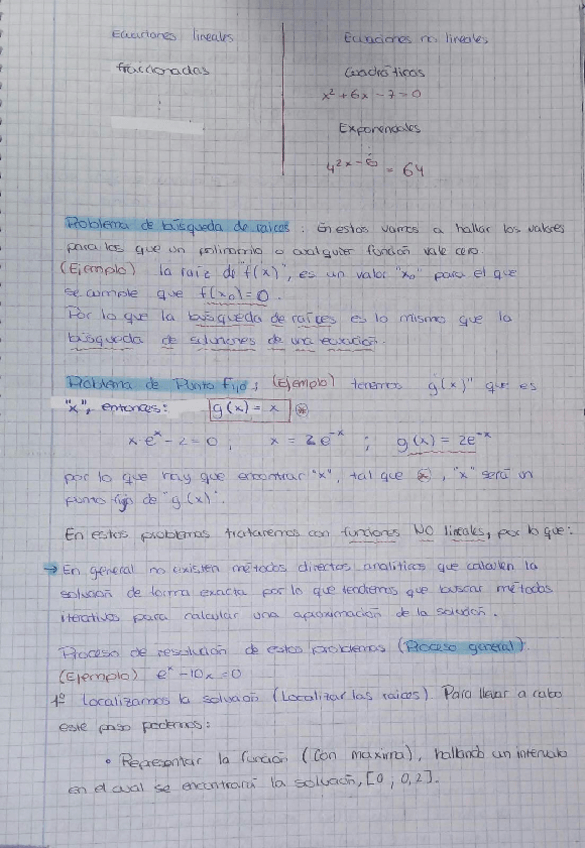 Ecuaciones lineales
Ecuaciones no lineales
fraccionadas
Cuadráticas
x² + 6x - 7 = 0
Exponenciales
4^(2x-6) = 64
Problema de búsqueda de raíces: En estos vamos a hallar los valores
para los que un polinomio o cualquier función vale cero
(Ejemplo) la raíz de "f(x)", es un valor "x₀" para el que
se cumple que f(x₀)=0.
Por lo que la búsqueda de raíces es lo mismo que la
búsqueda de soluciones de una ecuación.
Problema de Punto fijo; (Ejemplo) tenemos g(x)" que es
"x", entonces: g(x) = x ⊛
x eˣ - 2 = 0 ; x = 2e⁻ˣ ; g(x) = 2e⁻ˣ
por lo que hay que encontrar "x", tal que ⊛, "x" será un
punto fijo de "g(x)".
En estos problemas trataremos con funciones NO lineales, por lo que:
→ En general no existen métodos directos analíticos que calculen la
solución de forma exacta por lo que tendremos que buscar métodos
iterativos para calcular una aproximación de la solución.
Proceso de resolución de estos problemas (Proceso general).
(Ejemplo) eˣ - 10x = 0
1º Localizamos la solución (Localizar las raíces). Para llevar a cabo
este paso podemos:
• Representar la función (Con maxima), hallando un intervalo
en el cual se encontrará la solución, [0 ; 0,2].